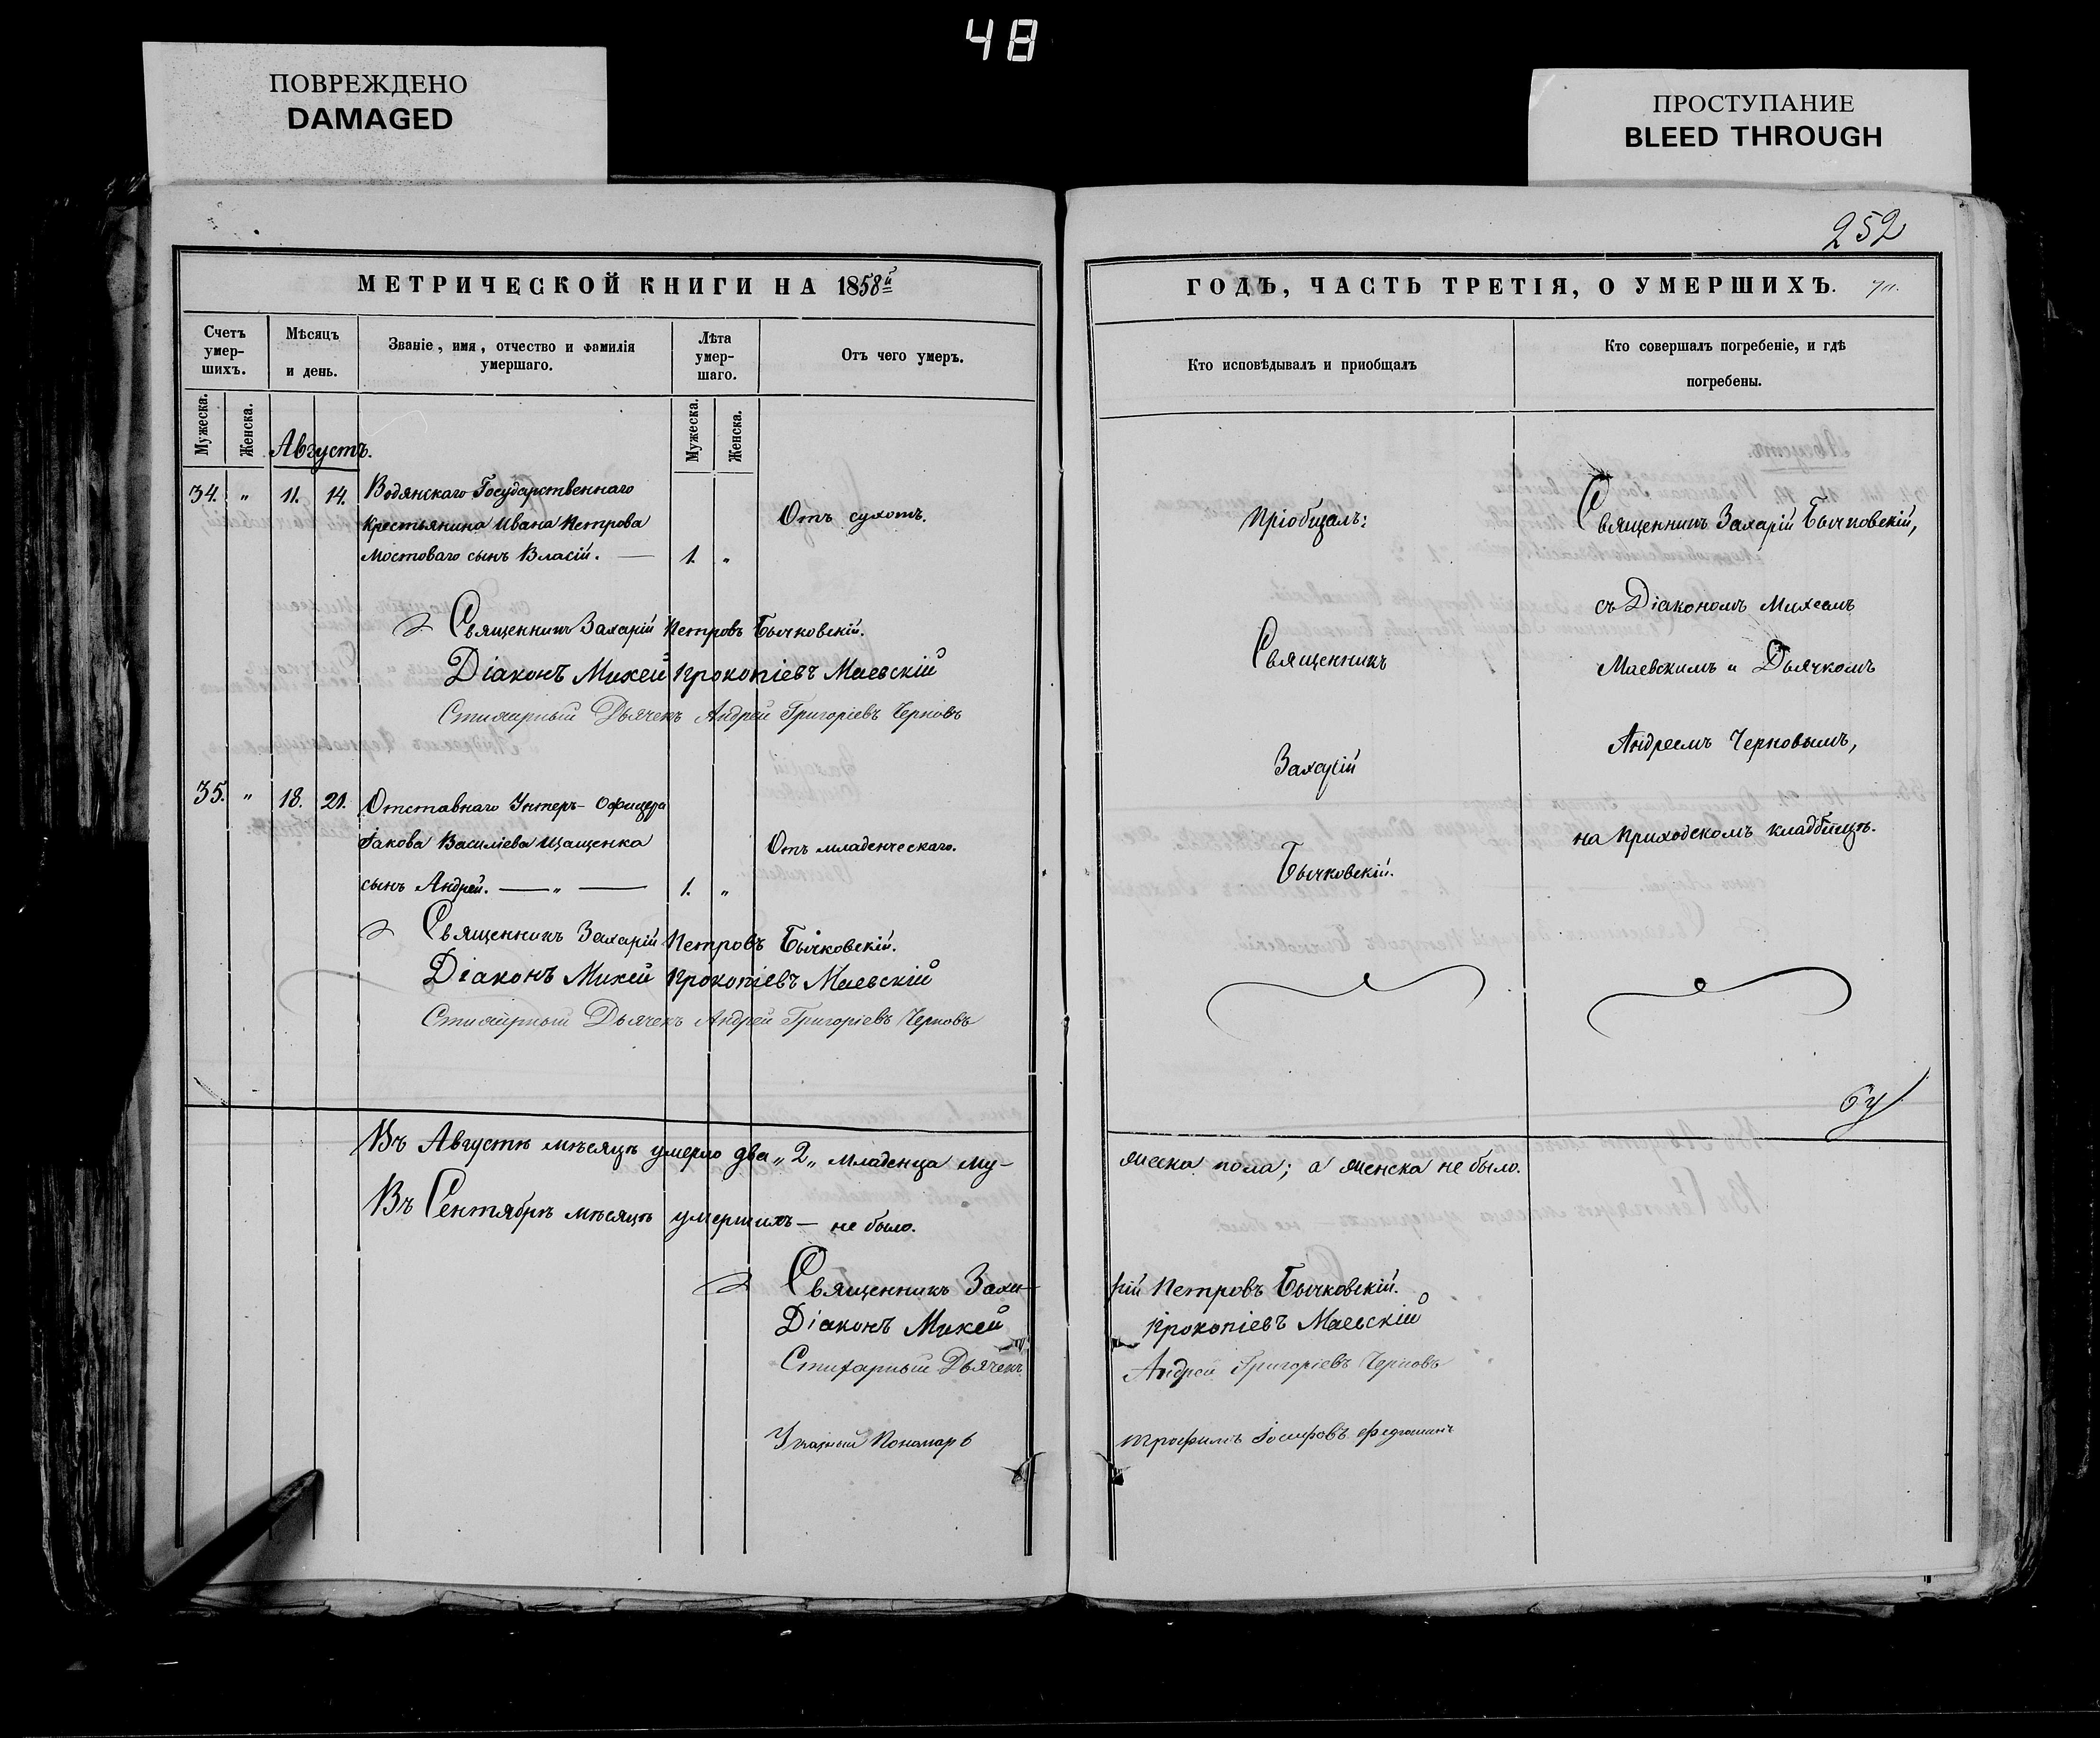 48
ПОВРЕЖДЕНО
DAMAGED
ПРОСТУПАНИЕ
BLEED THROUGH
252
МЕТРИЧЕСКОЙ КНИГИ НА 1858й
Счетъ умер-шихъ.
Мѣсяцъ и день.
Званіе, имя, отчество и фамилія умершаго.
Лѣта умер-шаго.
Отъ чего умеръ.
Мужеска.
Женска.
Мужеска.
Женска.
Августъ.
34. " 11. 14. Водянскаго Государственнаго
Крестьянина Ивана Петрова
Мостоваго сынъ Власій. — 1. "
Отъ сухотъ.
Священникъ Захарій Петровъ Бычковскій.
Діаконъ Михей Прокопіевъ Маевскій
Стихарный Дьячекъ Андрей Григоріевъ Черновъ
35. " 18. 21. Отставнаго Унтеръ-Офицера
Іакова Василіева Щащенка
сынъ Андрей. — " — 1. "
Отъ младенческаго.
Священникъ Захарій Петровъ Бычковскій.
Діаконъ Михей Прокопіевъ Маевскій
Стихарный Дьячекъ Андрей Григоріевъ Черновъ
Въ Августѣ мѣсяцѣ умерло два „2„ младенца му-
Въ Сентябрѣ мѣсяцѣ умершихъ — не было.
Священникъ Заха-
Діаконъ Михей
Стихарный Дьячекъ
Указный Пономарь
ГОДЪ, ЧАСТЬ ТРЕТІЯ, О УМЕРШИХЪ.
Кто исповѣдывалъ и пріобщалъ
Кто совершалъ погребеніе, и гдѣ погребены.
Пріобщалъ:
Священникъ
Захарій
Бычковскій.
Священникъ Захарій Бычковскій,
съ Діакономъ Михеемъ
Маевскимъ и Дьячкомъ
Андреемъ Черновымъ,
на Приходскомъ кладбищѣ.
жеска пола; а женска не было.
рій Петровъ Бычковскій.
Прокопіевъ Маевскій
Андрей Григоріевъ Черновъ
Трофимъ Іосифовъ